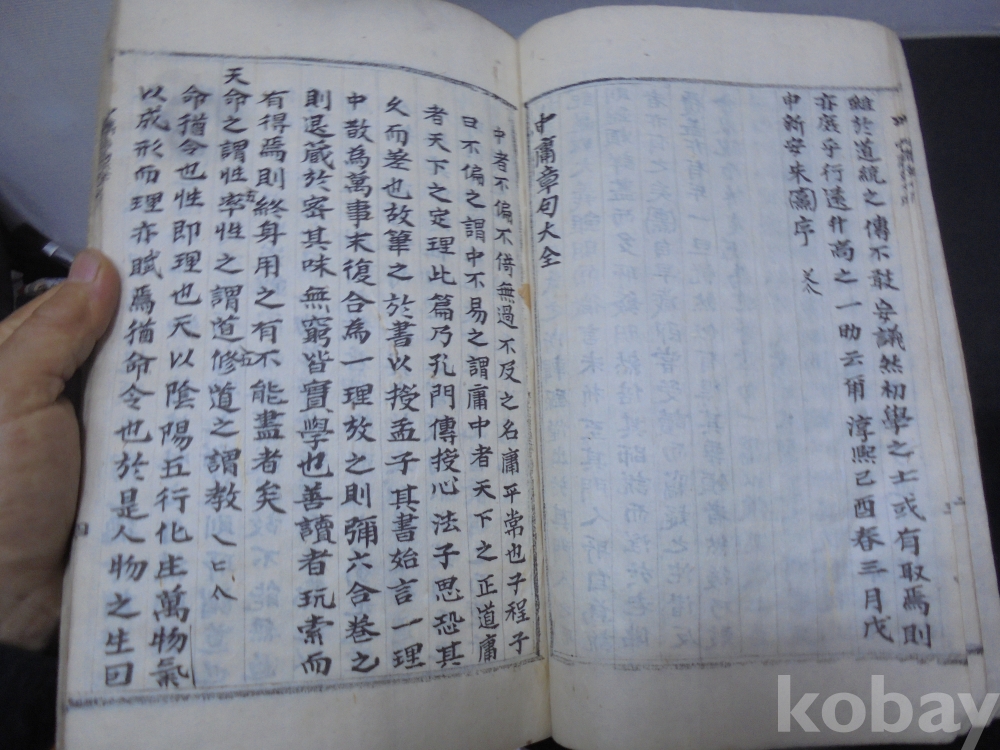 雖於道統之傳不敢妄議然初學之士或有取焉則
亦庶乎行遠升高之一助云爾 淳熙己酉春三月戊
申新安朱熹序
中庸章句大全
中者不偏不倚無過不及之名庸平常也子程子
曰不偏之謂中不易之謂庸中者天下之正道庸
者天下之定理此篇乃孔門傳授心法子思恐其
久而差也故筆之於書以授孟子其書始言一理
中散為萬事末復合為一理放之則彌六合卷之
則退蔵於密其味無窮皆實學也善讀者玩索而
有得焉則終身用之有不能盡者矣
天命之謂性五率性之謂道五修道之謂教
命猶令也性即理也天以陰陽五行化生萬物氣
以成形而理亦賦焉猶命令也於是人物之生囙
kobay